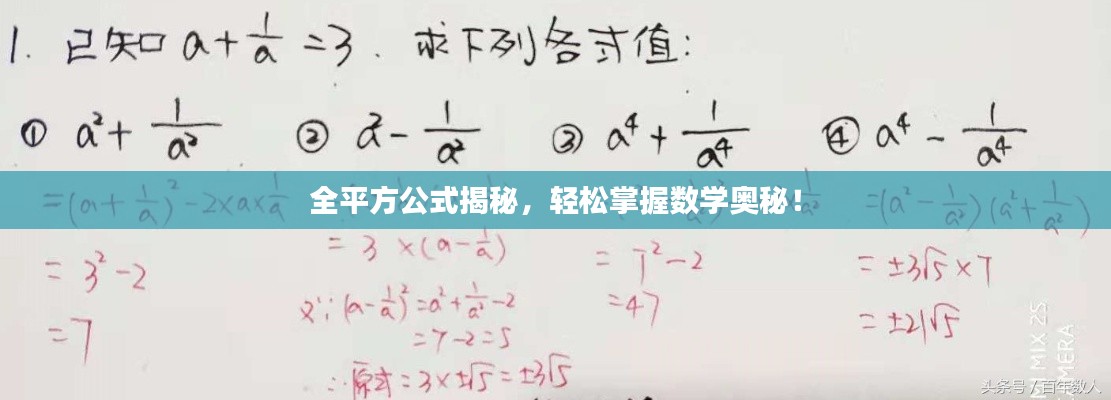 1. 已知 a + 1/a = 3. 求下列各式值:
① a² + 1/a² ② a² - 1/a² ③ a⁴ + 1/a⁴ ④ a⁴ - 1/a⁴
全平方公式揭秘，轻松掌握数学奥秘！
= (a + 1/a)² - 2×a×1/a
= 3² - 2
= 7
= 3 × (a - 1/a)
又∵ (a - 1/a)² = a² + 1/a² - 2
= 7 - 2 = 5
∴ 原式 = 3 × ±√5 = ±3√5
= 7² - 2
= 47
= (a² - 1/a²)(a² + 1/a²)
= ±3√5 × 7
= ±21√5
MIX 2S
头条号 / 百年数人